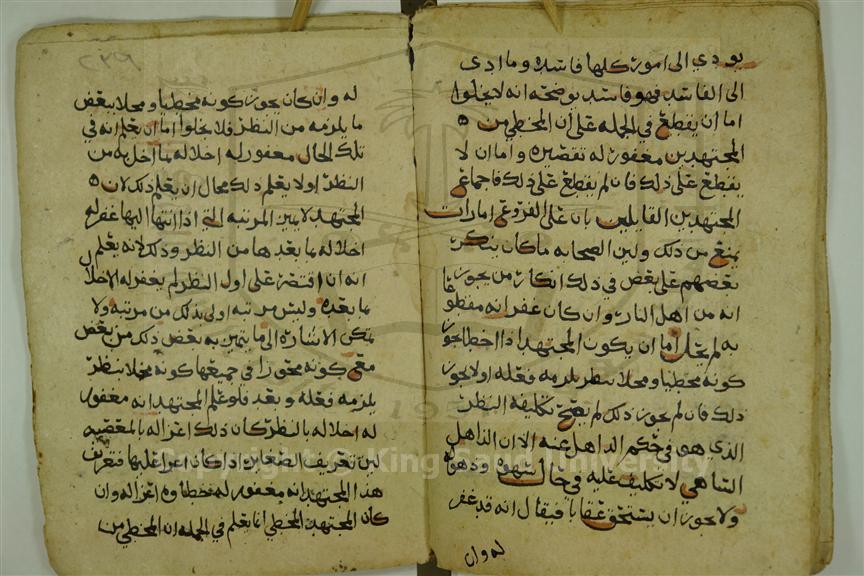 يودي الى امور كلها فاسده وما ادى
الى الفاسد فهو فاسد يوضحه انه لا يخلوا
اما ان يقطع في الجمله على أن المخطي من
المجتهدين مغفور له تقصيره واما ان لا
يقطع على ذلك فان لم يقطع على ذلك فاجماع
المجتهدين القايلين بان على الفروع امارات
يمنع من ذلك ولان الصحابه ما كان ينكر
بعضهم على بعض في ذلك انكار من يجوز
انه من اهل النار وان كان غفرانه مقطوعا
به لم يخل اما ان يكون المجتهد اذا اخطا يجوز
كونه مخطيا ومخلا بنظر يلزمه فعله او لا يجوز
ذلك فان لم يجوز ذلك لم يصح تكليفه النظر
الذي هو في حكم الذاهل عنه الا ان الذاهل
الساهي لا تكليف عليه في حال سهوه وذهوله
ولا يجوز ان يستحق عقابا فيقال انه قد غفر
له وان
له وان كان يجوز كونه مخطيا ومخلا ببعض
ما يلزمه من النظر فلا يخلوا اما ان يعلم انه في
تلك الحال مغفور له اخلاله بما اخل به من
النظر اولا يعلم ذلك محال ان يعلم ذلك لان
المجتهد لا يميز المرتبه التي اذا انتها اليها غفر له
اخلاله بما بعدها من النظر وذلك لانه يعلم
انه ان اقتصر على اول النظر لم يغفر له الاخلال
بما بعده وليس مرتبه اولى بذلك من مرتبه ولا
يمكن الاشاره الى ما يتميز به بعض ذلك من بعض
مع كونه مجوزا في جميعها كونه مخلا بنظر
يلزمه فعله وبعد فلو علم المجتهد انه مغفور
له اخلاله بالنظر كان ذلك اغرا له بالمعصيه
لان تعريف الصغاير اذ كان اغرا عليها فتعريف
هذا المجتهد انه مغفور له مخطاوه اغرا له وان
كان المجتهد المخطي انما يعلم في الجمله ان المخطي من